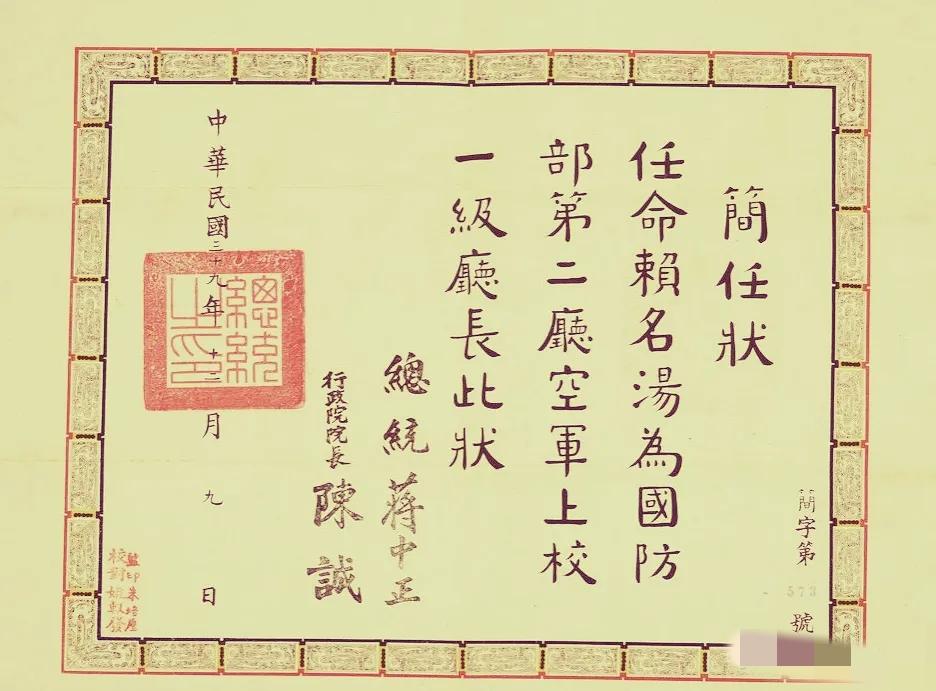 簡任狀
任命賴名湯為國防
部第二廳空軍上校
一級廳長此狀
總統 蔣中正
行政院院長 陳誠
中華民國三十九年十二月九日
總統之印
簡字第573號
監印朱培垕
校對